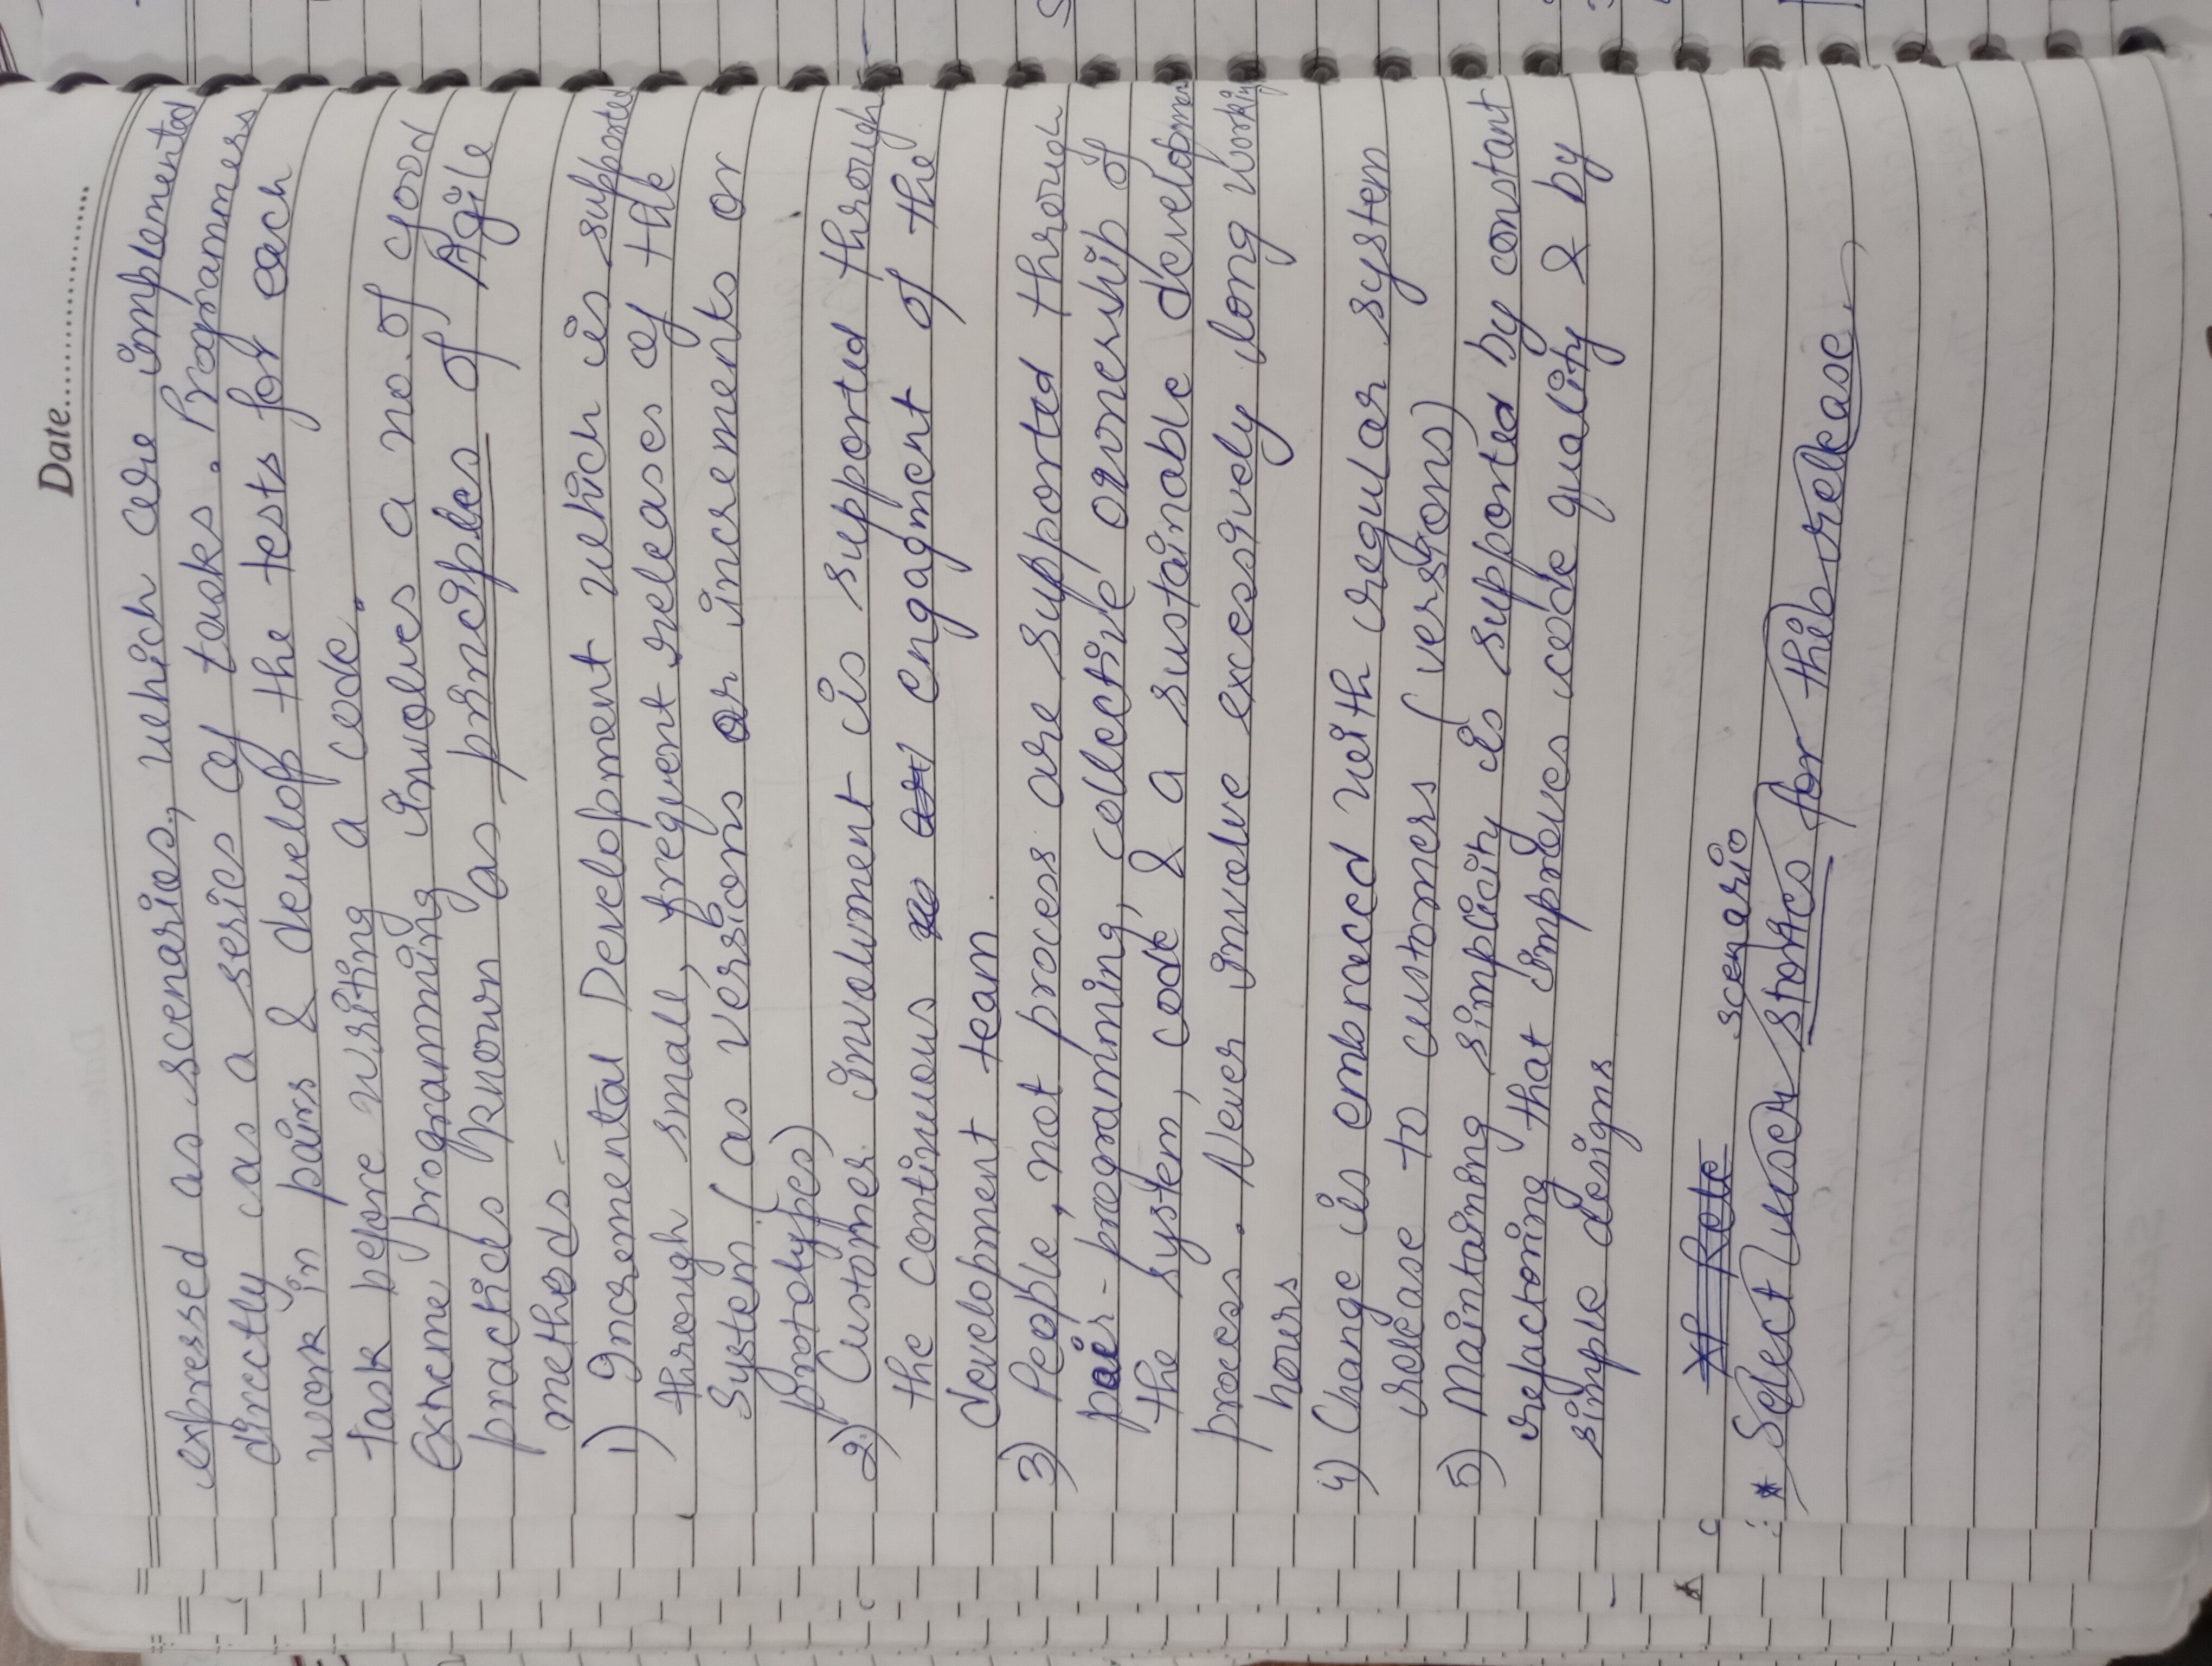 Date
expressed as scenarios, which are implemented
directly as a series of tasks. Programmers
work in pairs & develop the tests for each
task before writing a code.
Extreme programming involves a no. of good
practices known as principles of Agile
methods -
1) Incremental Development which is supported
through small, frequent releases of the
system (as versions or increments or
prototypes)
2) Customer involvment is supported through
the continuous engagment of the
development team.
3) People, not process are supported through
pair-programming, collective ownership of
the system, code & a sustainable developmen
process. Never involve excessively long working
hours
4) Change is embraced with regular system
release to customers (versions)
5) Maintaining simplicity is supported by constant
refactoring that improves code quality & by
simple designs
scenario
* Select user stories for this release